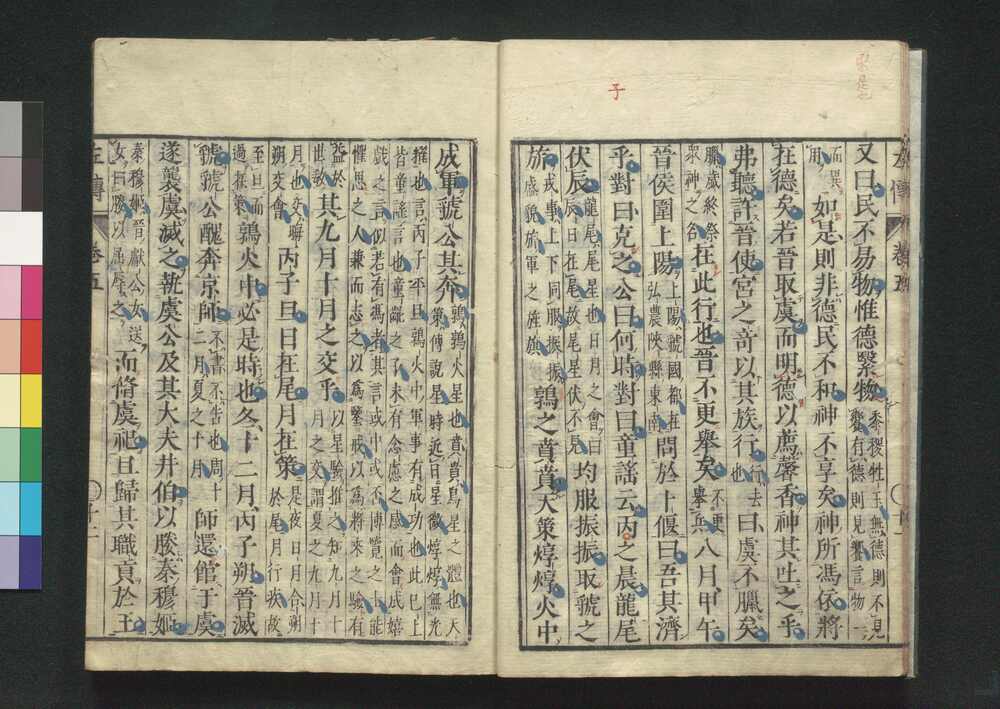 子
又曰民不易物惟德繄物黍稷牲玉無德則不見
饗有德則見饗言物一
而異用如是則非德民不和神不享矣神所馮依將
在德矣若晉取虞而明德以薦馨香神其吐之乎
弗聽許晉使宮之奇以其族行行去也曰虞不臘矣
臘歲終祭
衆神之名在此行也晉不更舉矣不更
舉兵八月甲午
晉侯圍上陽上陽虢國都在
弘農陝縣東南問於卜偃曰吾其濟
乎對曰克之公曰何時對曰童謠云丙之晨龍尾
伏辰龍尾尾星也日月之會曰
辰日在尾故尾星伏不見均服振振取虢之
旂戎事上下同服振振
盛貌旂軍之旌旗鶉之賁賁天策焞焞火中
成軍虢公其奔鶉鶉火星也賁賁鳥星之體也天
策傳說星時近日星微焞焞無光
耀也言丙子平旦鶉火中軍事有成功也此已上
皆童謠言也童齔之子未有念慮之感而會成嬉
戲之言似若有馮者其言或中或否博覽之士能
懼思之人兼而志之以爲鑒戒以爲將來之驗有
益於
世敎其九月十月之交乎以星驗推之知九月十
月之交謂夏之九月十
月也交晦
朔交會丙子旦日在尾月在策是夜日月合朔
於尾月行疾故
至旦而
過在策鶉火中必是時也冬十二月丙子朔晉滅
虢虢公醜奔京師不書不告也周十
二月夏之十月師還館于虞
遂襲虞滅之執虞公及其大夫井伯以媵秦穆姬
秦穆姬晉獻公女送
女曰媵以屈辱之而脩虞祀且歸其職貢於王
左傳 卷五